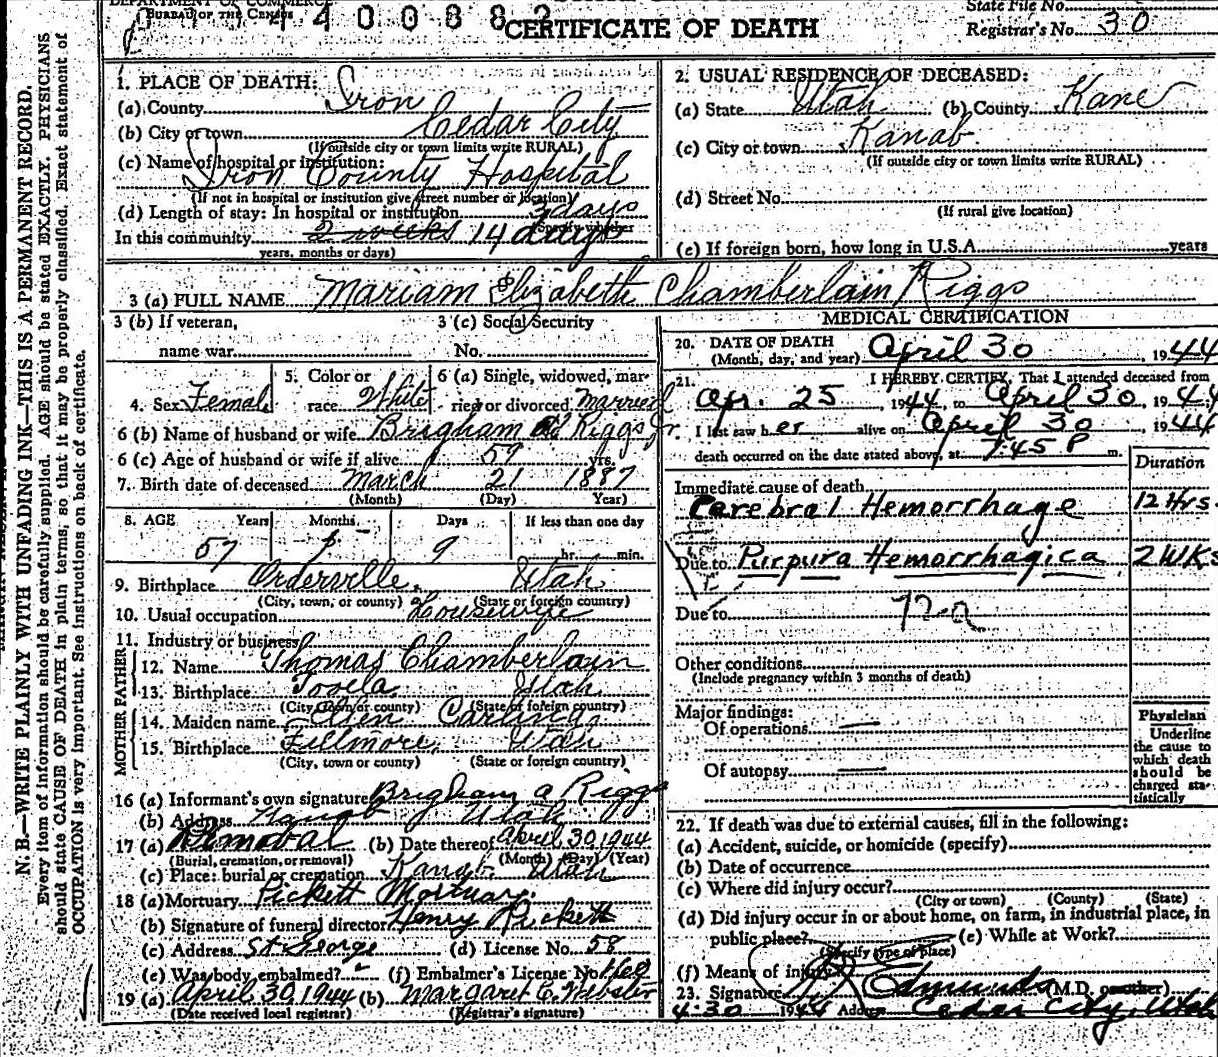 DEPARTMENT OF COMMERCE
BUREAU OF THE CENSUS
CERTIFICATE OF DEATH
State File No.
Registrar's No. 30
N. B.—WRITE PLAINLY WITH UNFADING INK—THIS IS A PERMANENT RECORD.
Every item of information should be carefully supplied. AGE should be stated EXACTLY. PHYSICIANS
should state CAUSE OF DEATH in plain terms, so that it may be properly classified. Exact statement of
OCCUPATION is very important. See instructions on back of certificate.
1. PLACE OF DEATH:
(a) County Iron
(b) City or town Cedar City
(If outside city or town limits write RURAL)
(c) Name of hospital or institution:
Iron County Hospital
(If not in hospital or institution give street number or location)
(d) Length of stay: In hospital or institution 3 days
Specify whether
In this community 2 weeks 14 days
years, months or days)
2. USUAL RESIDENCE OF DECEASED:
(a) State Utah (b) County Kane
(c) City or town Kanab
(If outside city or town limits write RURAL)
(d) Street No.
(If rural give location)
(e) If foreign born, how long in U.S.A. years
3 (a) FULL NAME Mariam Elizabeth Chamberlain Riggs
3 (b) If veteran, 3 (c) Social Security
name war No.
4. Sex Female 5. Color or race White 6 (a) Single, widowed, married or divorced Married
6 (b) Name of husband or wife Brigham A Riggs Jr.
6 (c) Age of husband or wife if alive 59 yrs.
7. Birth date of deceased March 21 1887
(Month) (Day) Year)
8. AGE Years Months Days If less than one day
57 1 9 hr. min.
9. Birthplace Orderville, Utah
(City, town, or county) (State or foreign country)
10. Usual occupation Housewife
11. Industry or business
FATHER
12. Name Thomas Chamberlain
13. Birthplace Tooela Utah
(City, town or county) (State of foreign country)
MOTHER
14. Maiden name Elen Carling
15. Birthplace Fillmore, Utah
(City, town or county) (State or foreign country)
16 (a) Informant's own signature Brigham A Riggs
(b) Address Kanab Utah
17 (a) Removal (b) Date thereof April 30, 1944
(Burial, cremation, or removal) (Month) (Day) (Year)
(c) Place: burial or cremation Kanab. Utah
18 (a) Mortuary Pickett Mortuary.
(b) Signature of funeral director Henry Pickett
(c) Address St George (d) License No. 58
(e) Was body embalmed? (f) Embalmer's License No.
19 (a) April 30, 1944 (b) Margaret C. Webster
(Date received local registrar) (Registrar's signature)
MEDICAL CERTIFICATION
20. DATE OF DEATH
(Month, day, and year) April 30, 1944
21. I HEREBY CERTIFY, That I attended deceased from
Apr. 25, 1944, to April 30, 1944
I last saw her alive on April 30 1944
death occurred on the date stated above, at 7:45 P m.
Duration
Immediate cause of death
Cerebral Hemorrhage 12 Hrs.
Due to Purpura Hemorrhagica 2 WKs
Due to
Other conditions
(Include pregnancy within 3 months of death)
Major findings:
Of operations —
Of autopsy —
Physician
Underline
the cause to
which death
should be
charged sta-
tistically
22. If death was due to external causes, fill in the following:
(a) Accident, suicide, or homicide (specify)
(b) Date of occurrence
(c) Where did injury occur?
(City or town) (County) (State)
(d) Did injury occur in or about home, on farm, in industrial place, in
public place? (e) While at Work?
(Specify type of place)
(f) Means of injury
23. Signature Edmunds (M.D. or other)
4-30 1944 Address Cedar City, Utah